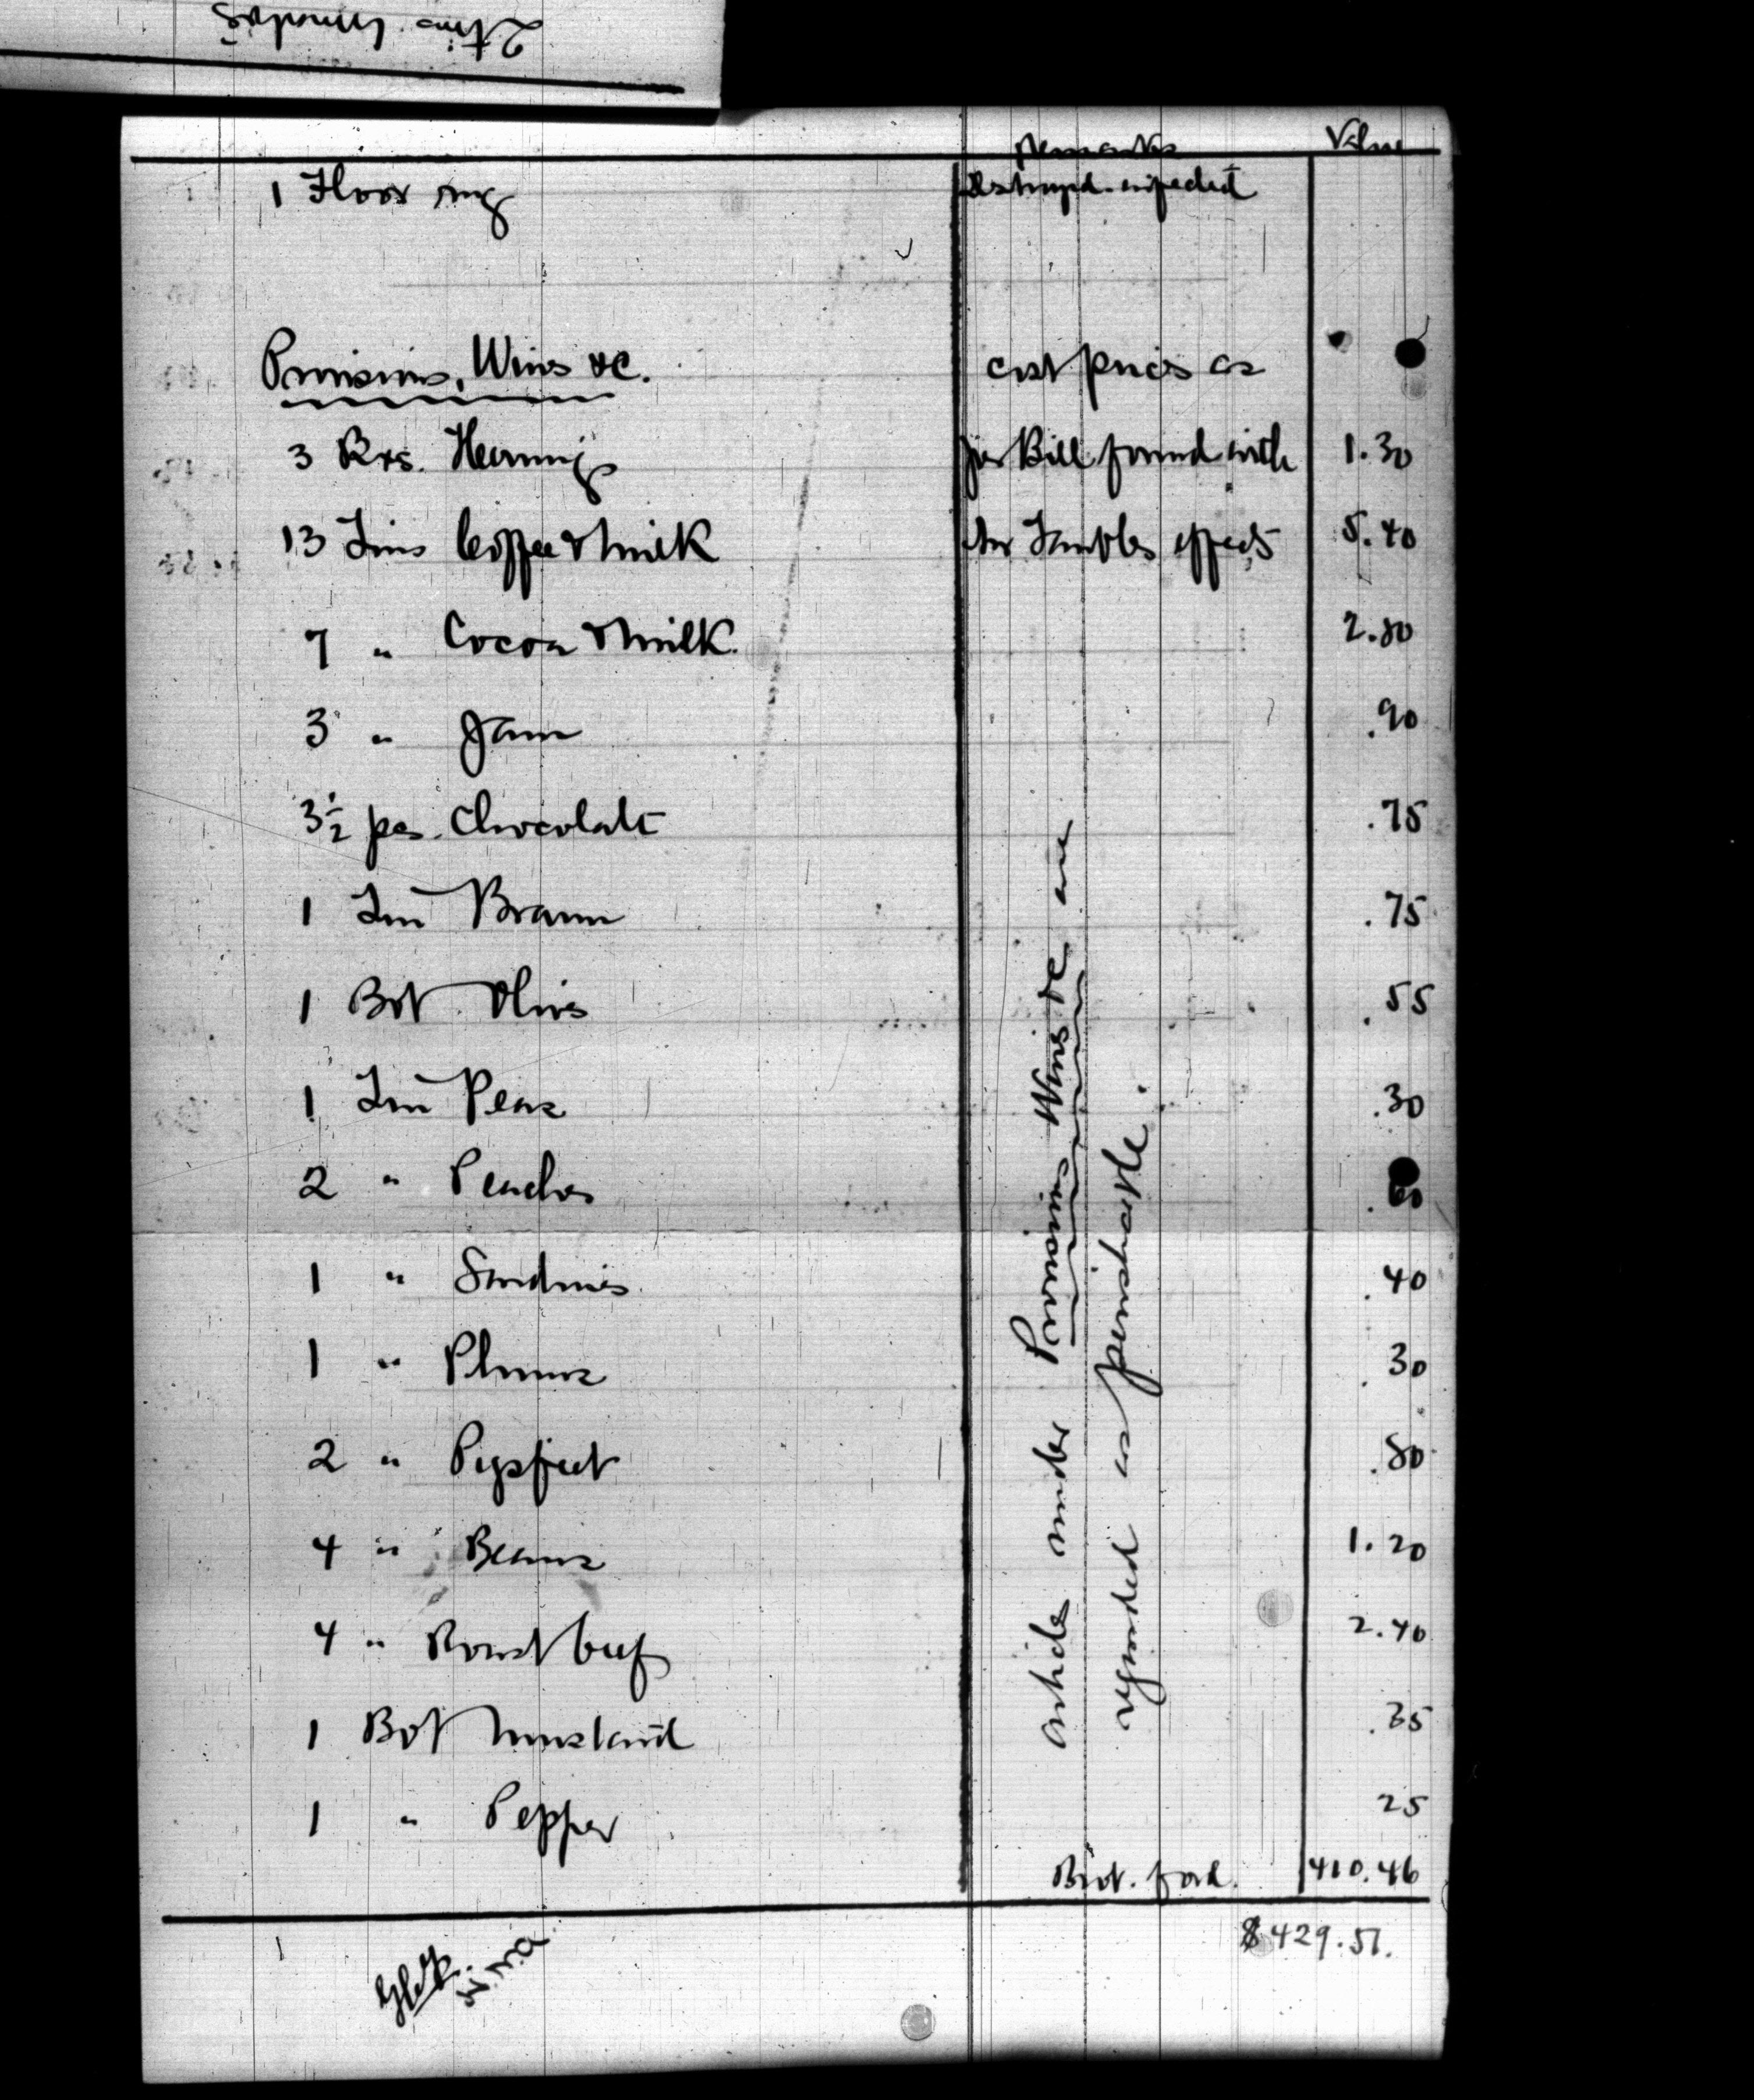 2 tins tomatoes
Remarks Value
1 Floor rug destroyed infected
Provisions, Wines &c. cost prices as
3 Bxs. Herrings per Bill found with 1.30
13 Tins Coffee & milk effects 5.40
7 " Cocoa & milk. 2.80
3 " Jam .90
3½ pcs. Chocolate .75
1 Tin Brawn .75
1 Bot Olives .55
1 Tin Pears .30
2 " Peaches .60
1 " Sardines .40
1 " Plums .30
2 " Pigsfeet .80
4 " Beans 1.20
4 " Roast beef 2.40
1 Bot Mustard .35
1 " Pepper 25
articles under Provisions Wines &c are
regarded as perishable.
Brot. ford. 410.46
$429.51.